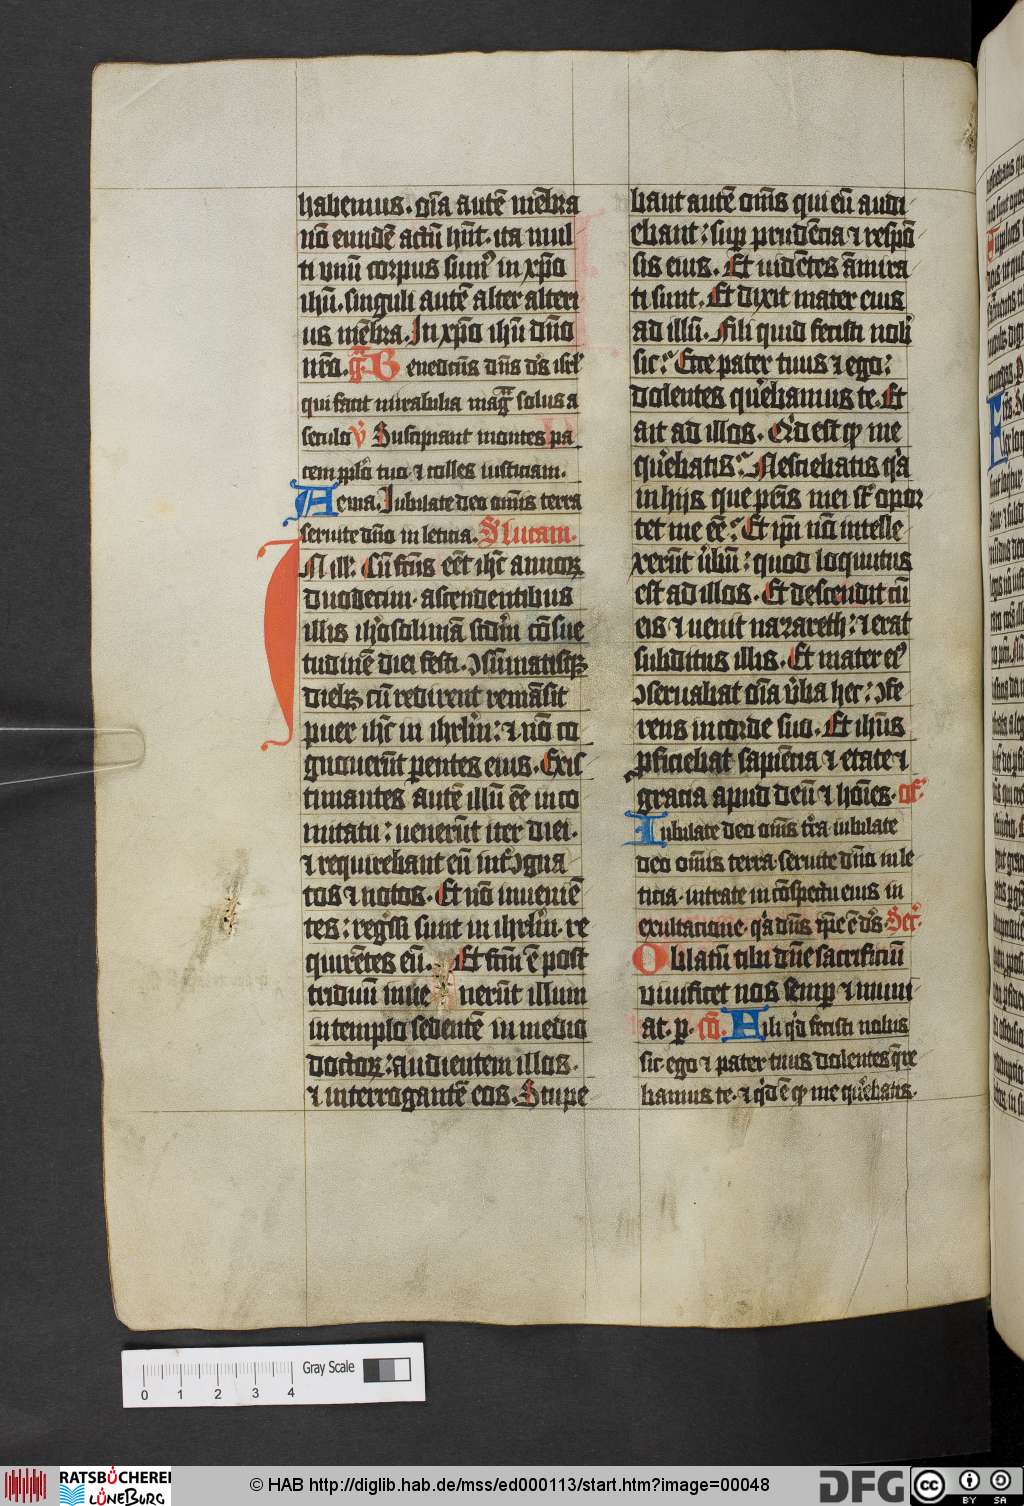 habemus. oīa autē mēbra
nō eundē actū hn̄t. ita mul
ti vnū corpus sumꝰ in xp̄o
ihū. singuli autē alter alteri
us mēbra. In xp̄o ihū dn̄o
nr̄o. Gͣ Benedictus dn̄s dꝰs isrl̓
qui facit mirabilia magͣ solus a
seculo v̓ Suscipiant montes pa
cem pplo̓ tuo ⁊ colles iusticiam.
Aeuia. Iubilate deo omīs terra
seruite dn̄o in leticia. S̓ lucam.
IN ill̓: Cū fc̄us eēt ihc̄ annoꝝ
duodecim. ascendentibus
illis ih̓osolimā scdm̓ cōsue
tudinē diei festi. ↄsūmatisqꝫ
diebꝫ cū redirent remāsit
puer ihc̄ in ihrl̓m: ⁊ nō co
gnouerūt parentes eius. Exis
timantes autē illū eē in co
mitatu: uenerūt iter diei.
⁊ requirebant eū int̓ ↄgna
tos ⁊ notos. Et nō inueniē
tes: reg̓ssi sunt in ihrl̓m. re
quirētes eū. Et fc̄m ē post
triduū inue nerūt illum
in templo sedentē in medio
doctoꝝ: audientem illos.
⁊ interrogantē eos. Stupe
bant autē omīs qui eū audi
ebant: suꝑ prudēcia ⁊ respō
sis eius. Et uidētes āmira
ti sunt. Et dixit mater eius
ad illū. Fili quid fecisti nob̓
sic: Ecce pater tuus ⁊ ego:
dolentes qu̓ebamus te. Et
ait ad illos. Qͥd est qͥ me
qu̓ebatis: Nesciebatis qͥa
in hijs que pr̄is mei st̄ opor
tet me eē: Et ip̄i nō intelle
xerūt u̓bū: quod loquutus
est ad illos. Et descendit cū
eis ⁊ uenit nazareth: ⁊ erat
subditus illis. Et mater eiꝰ
ↄseruabat oīa u̓ba hec: ↄfe
rens in corde suo. Et ihūs
ꝓficiebat sapiēcia ⁊ etate ⁊
gracia apud deū ⁊ hoīes. of̄:
Iubilate deo omīs t̓ra iubilate
deo omīs terra seruite dn̄o in le
ticia. intrate in cōspectu eius in
exultacione. qͥa dn̄s ip̄e ē dꝰs. Secr̓.
Oblatū tibi dn̄e sacrificiū
viuificet nos semꝑ ⁊ muni
at. ꝑ. cō. Fili qͥd fecisti nobis
sic. ego ⁊ pater tuus dolentes q̄re
bamus te. ⁊ qͥd ē qͥ me qu̓ebatis.
0 1 2 3 4
Gray Scale
RATSBÜCHEREI
LÜNEBURG
© HAB http://diglib.hab.de/mss/ed000113/start.htm?image=00048
DFG
cc
BY SA